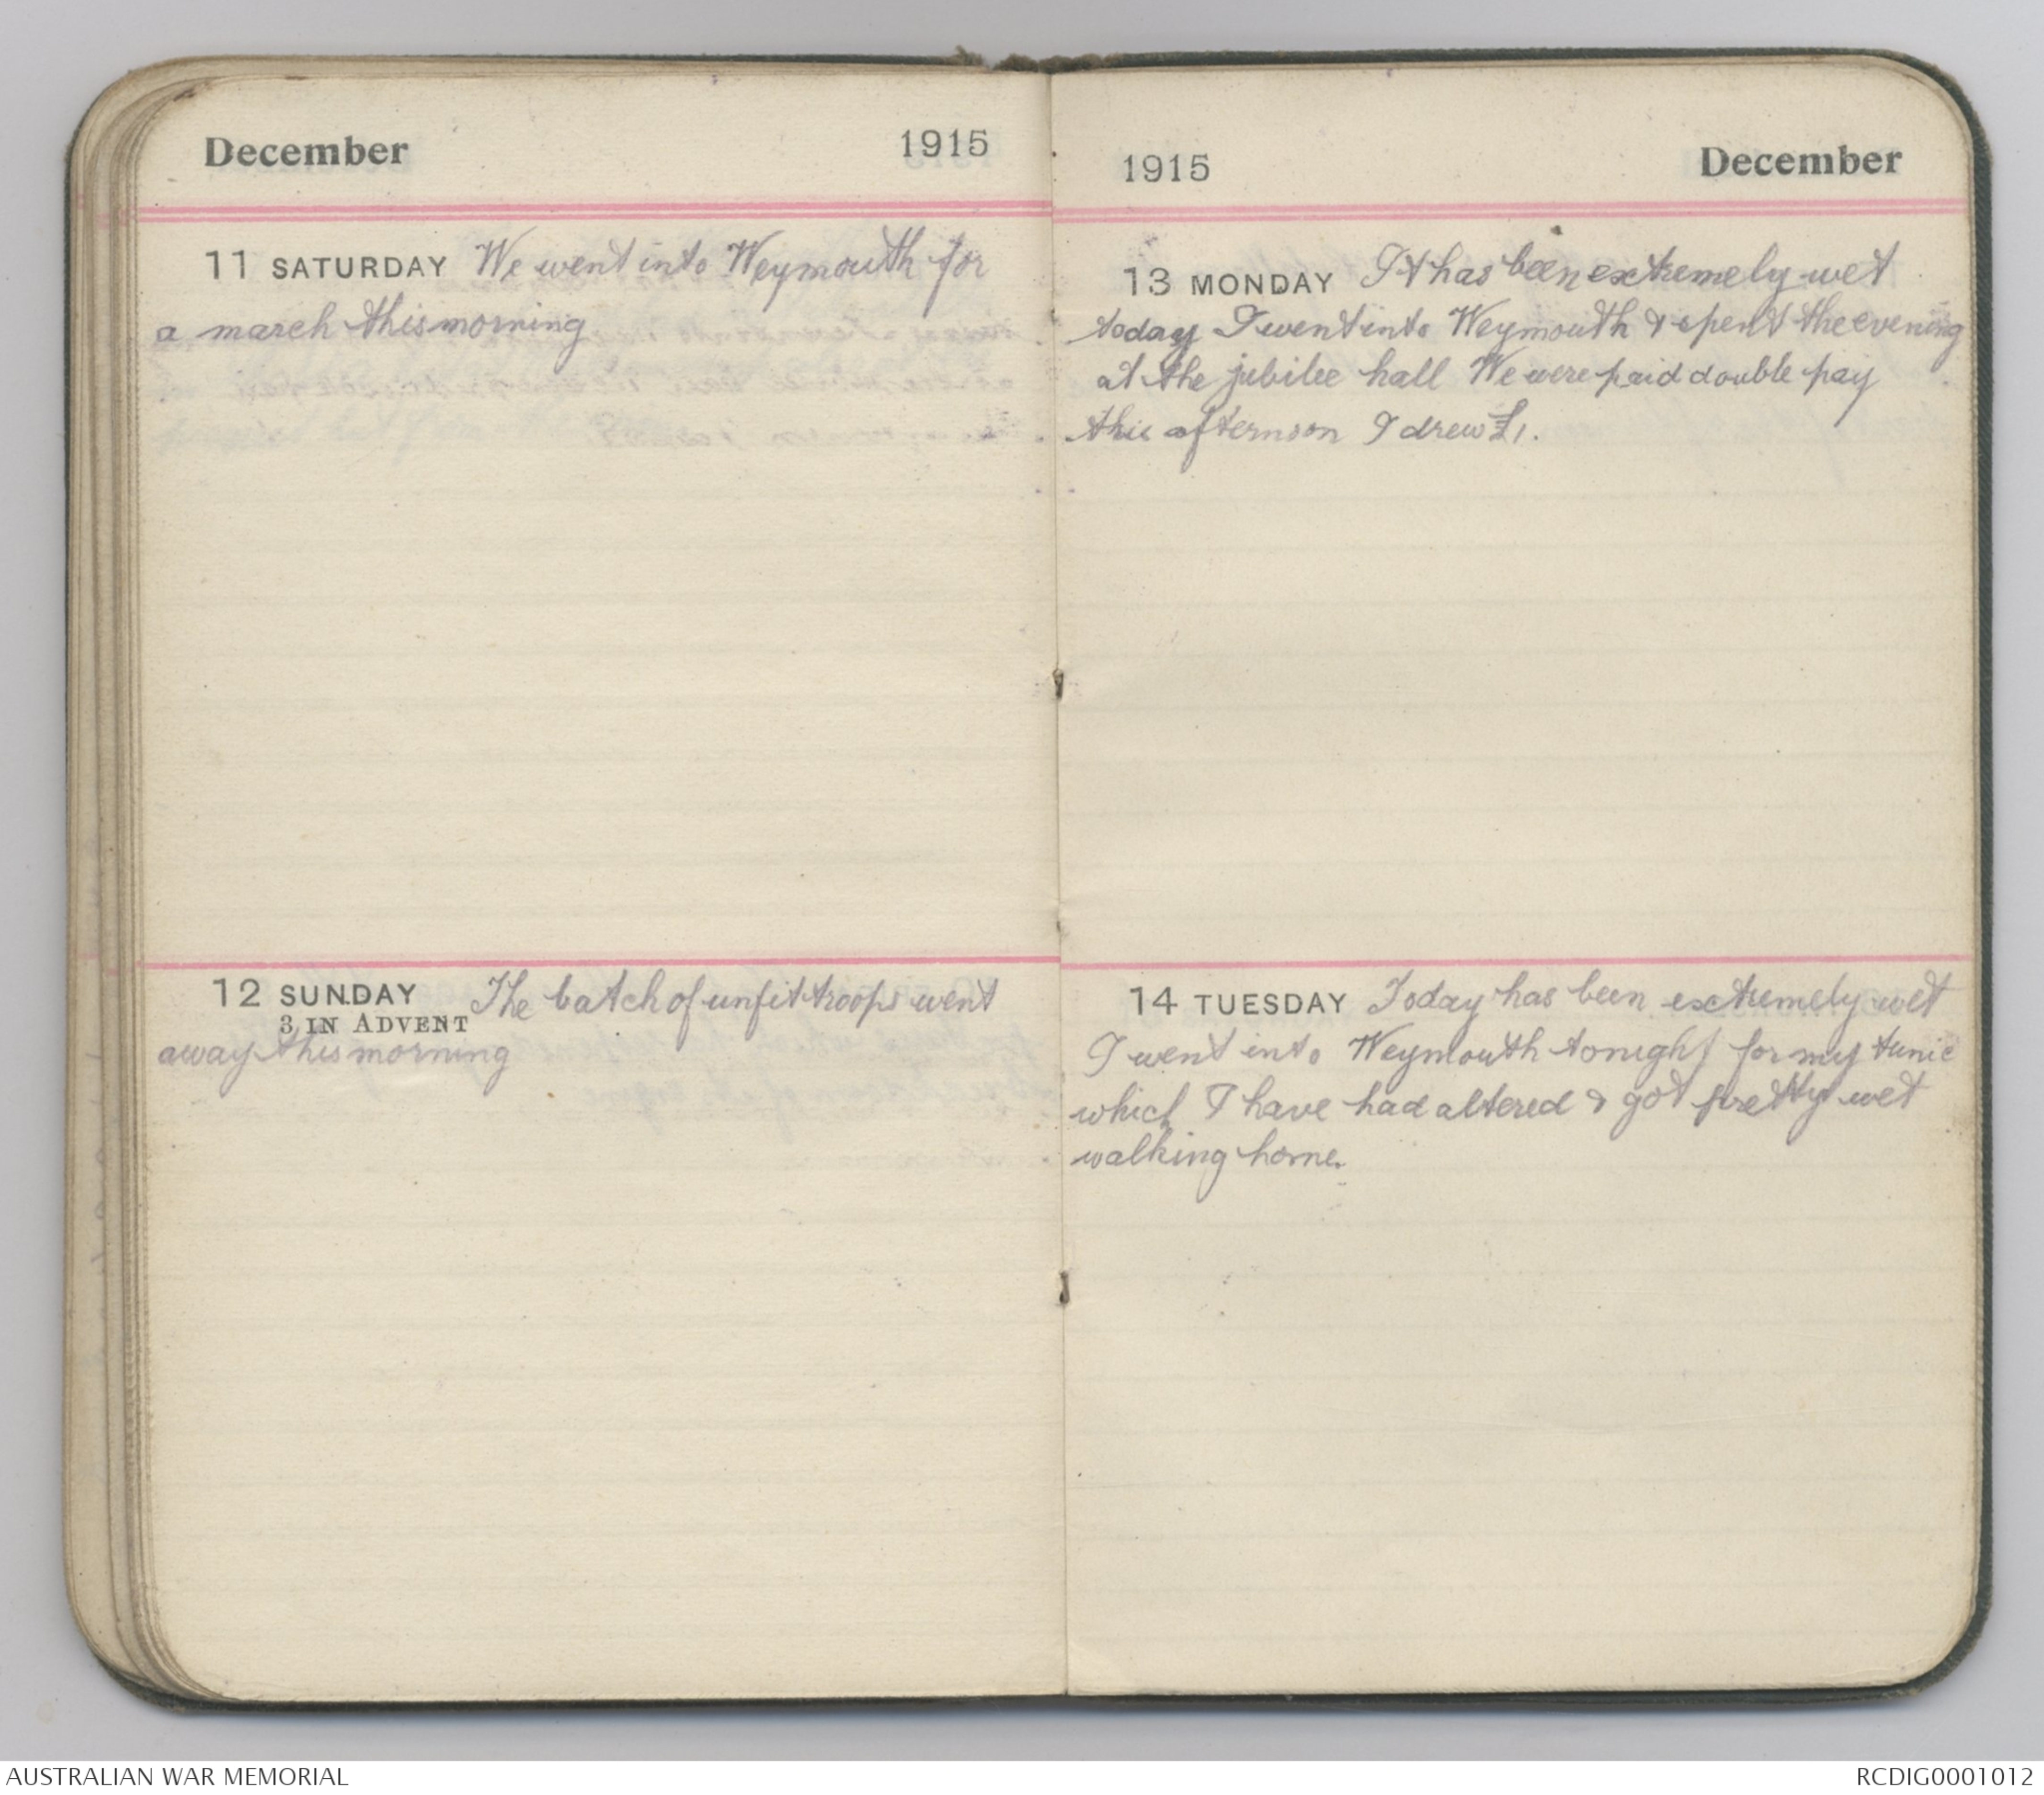 December 1915
11 SATURDAY We went into Weymouth for
a march this morning
12 SUNDAY The batch of unfit troops went
3 IN ADVENT
away this morning
1915 December
13 MONDAY It has been extremely wet
today I went into Weymouth & spent the evening
at the jubilee hall We were paid double pay
this afternoon I drew £1.
14 TUESDAY Today has been extremely wet
I went into Weymouth tonight for my tunic
which I have had altered & got pretty wet
walking home.
AUSTRALIAN WAR MEMORIAL RCDIG0001012